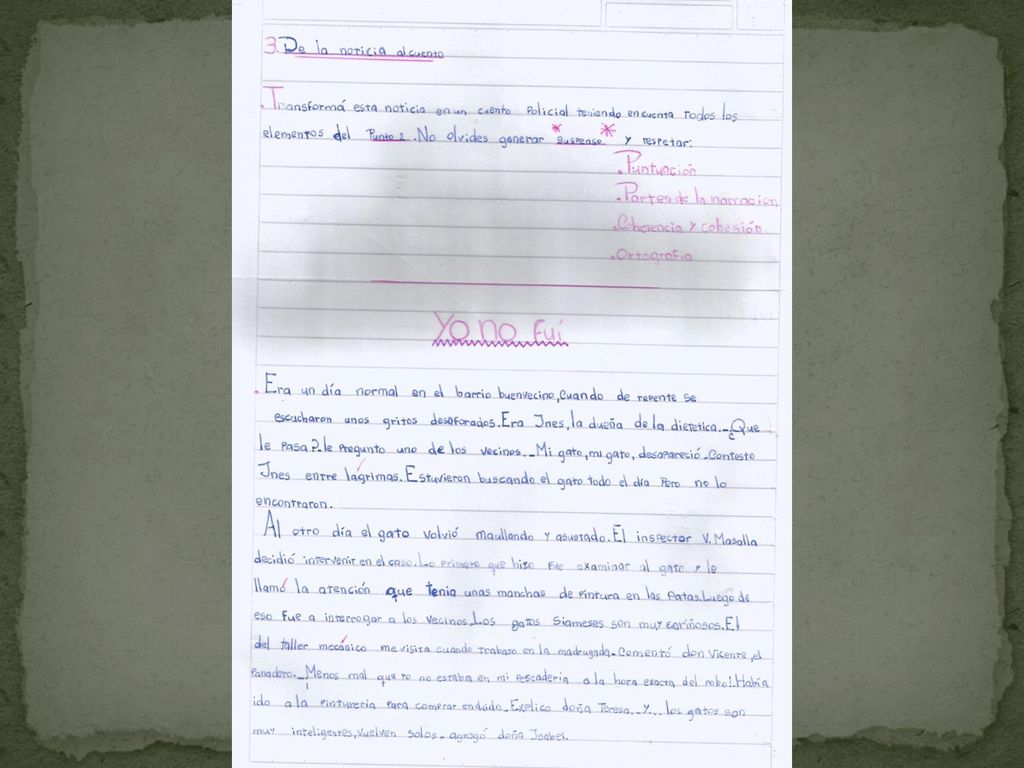 3. De la noticia al cuento
. Transformá esta noticia en un cuento Policial teniendo en cuenta todos los
elementos del Punto 2. No olvides generar * suspenso * y respetar:
. Puntuación
. Partes de la narración
. Coherencia y cohesión
. Ortografía
Yo no fui
. Era un día normal en el barrio buenvecino, Cuando de repente se
escucharon unos gritos desaforados. Era Ines, la dueña de la dietetica. _ ¿Que
le pasa?_ le pregunto uno de los vecinos. _ Mi gato, mi gato, desapareció _ Contesto
Ines entre lágrimas. Estuvieron buscando el gato todo el día Pero no lo
encontraron.
Al otro día el gato volvió maullando y asustado. El inspector V. Masalla
decidió intervenir en el caso. Lo primero que hizo fue examinar al gato y le
llamó la atención que tenia unas manchas de pintura en las patas. Luego de
eso fue a interrogar a los vecinos. Los gatos Siameses son muy cariñosos. El
del taller mecánico me visita cuando trabajo en la madrugada _ Comentó don Vicente, el
Panadero. _ ¡Menos mal que yo no estaba en mi Pescaderia a la hora exacta del robo!. Había
ido a la Pinturería Para comprar enduido _ Explico doña Teresa. _ Y... los gatos son
muy inteligentes, Vuelven solos _ agregó doña Isabel.